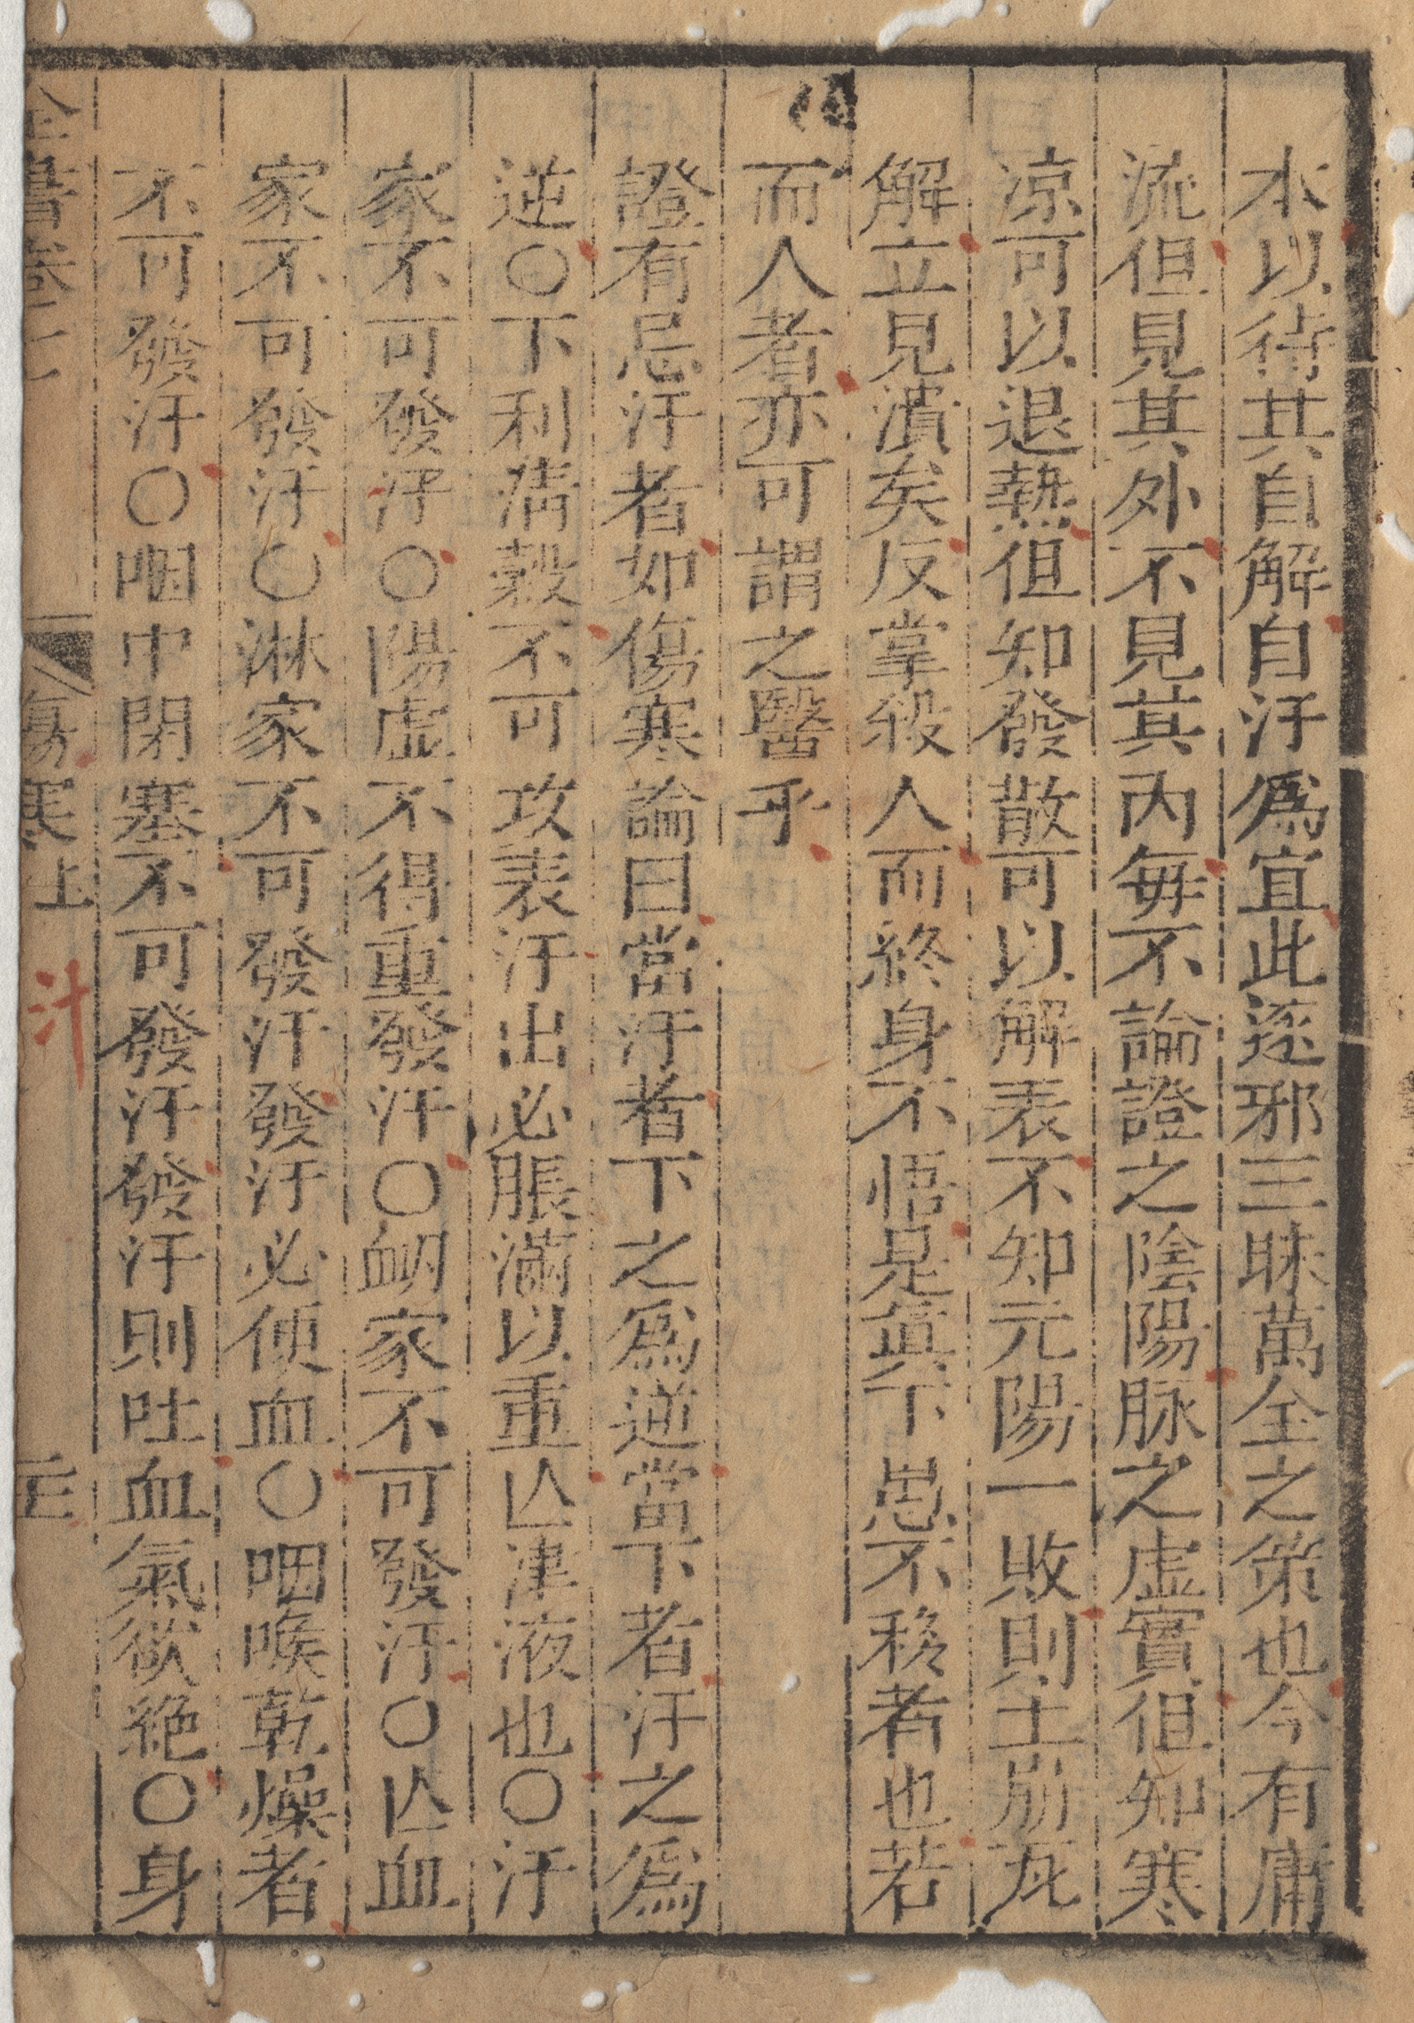 水以待其自解自汗爲宜此逐邪三昧萬全之策也今有庸
流但見其外不見其內毎不論證之陰陽脉之虛實但知寒
凉可以退熱但知發散可以解表不知元陽一敗則土崩瓦
解立見潰矣反掌殺人而終身不悟是眞下愚不移者也若
而人者亦可謂之醫乎
證有忌汗者如傷寒論曰當汗者下之爲逆當下者汗之爲
逆〇下利淸穀不可攻表汗出必脹滿以重亾津液也〇汗
家不可發汗〇陽虛不得重發汗〇衂家不可發汗〇亾血
家不可發汗〇淋家不可發汗發汗必便血〇咽喉乾燥者
不可發汗〇咽中閉塞不可發汗發汗則吐血氣欲絶〇身
全書卷七
傷寒上
汁